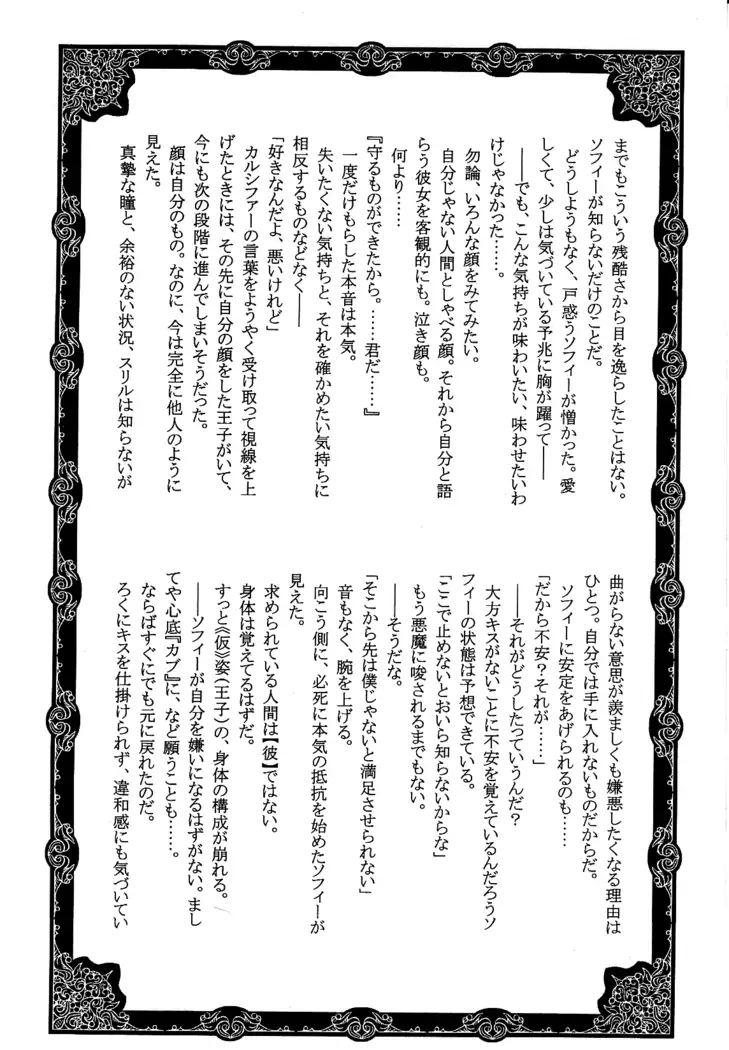 までもこういう残酷さから目を逸らしたことはない。
ソフィーが知らないだけのことだ。
どうしようもなく、戸惑うソフィーが憎かった。愛
しくて、少しは気づいている予兆に胸が躍って――
――でも、こんな気持ちが味わいたい、味わせたいわ
けじゃなかった……。
勿論、いろんな顔をみてみたい。
自分じゃない人間としゃべる顔。それから自分と語
らう彼女を客観的にも。泣き顔も。
何より……
『守るものができたから。……君だ……』
一度だけもらした本音は本気。
失いたくない気持ちと、それを確かめたい気持ちに
相反するものなどなく――
「好きなんだよ、悪いけれど」
カルシファーの言葉をようやく受け取って視線を上
げたときには、その先に自分の顔をした王子がいて、
今にも次の段階に進んでしまいそうだった。
顔は自分のもの。なのに、今は完全に他人のように
見えた。
真摯な瞳と、余裕のない状況、スリルは知らないが
曲がらない意思が羨ましくも嫌悪したくなる理由は
ひとつ。自分では手に入れないものだからだ。
ソフィーに安定をあげられるのも……
「だから不安？それが……」
――それがどうしたっていうんだ？
大方キスがないことに不安を覚えているんだろうソ
フィーの状態は予想できている。
「ここで止めないとおいら知らないからな」
もう悪魔に唆されるまでもない。
――そうだな。
「そこから先は僕じゃないと満足させられない」
音もなく、腕を上げる。
向こう側に、必死に本気の抵抗を始めたソフィーが
見えた。
求められている人間は【彼】ではない。
身体は覚えてるはずだ。
すっと《仮》姿（王子）の、身体の構成が崩れる。
――ソフィーが自分を嫌いになるはずがない。まし
てや心底『カブ』に、など願うことも……。
ならばすぐにでも元に戻れたのだ。
ろくにキスを仕掛けられず、違和感にも気づいてい